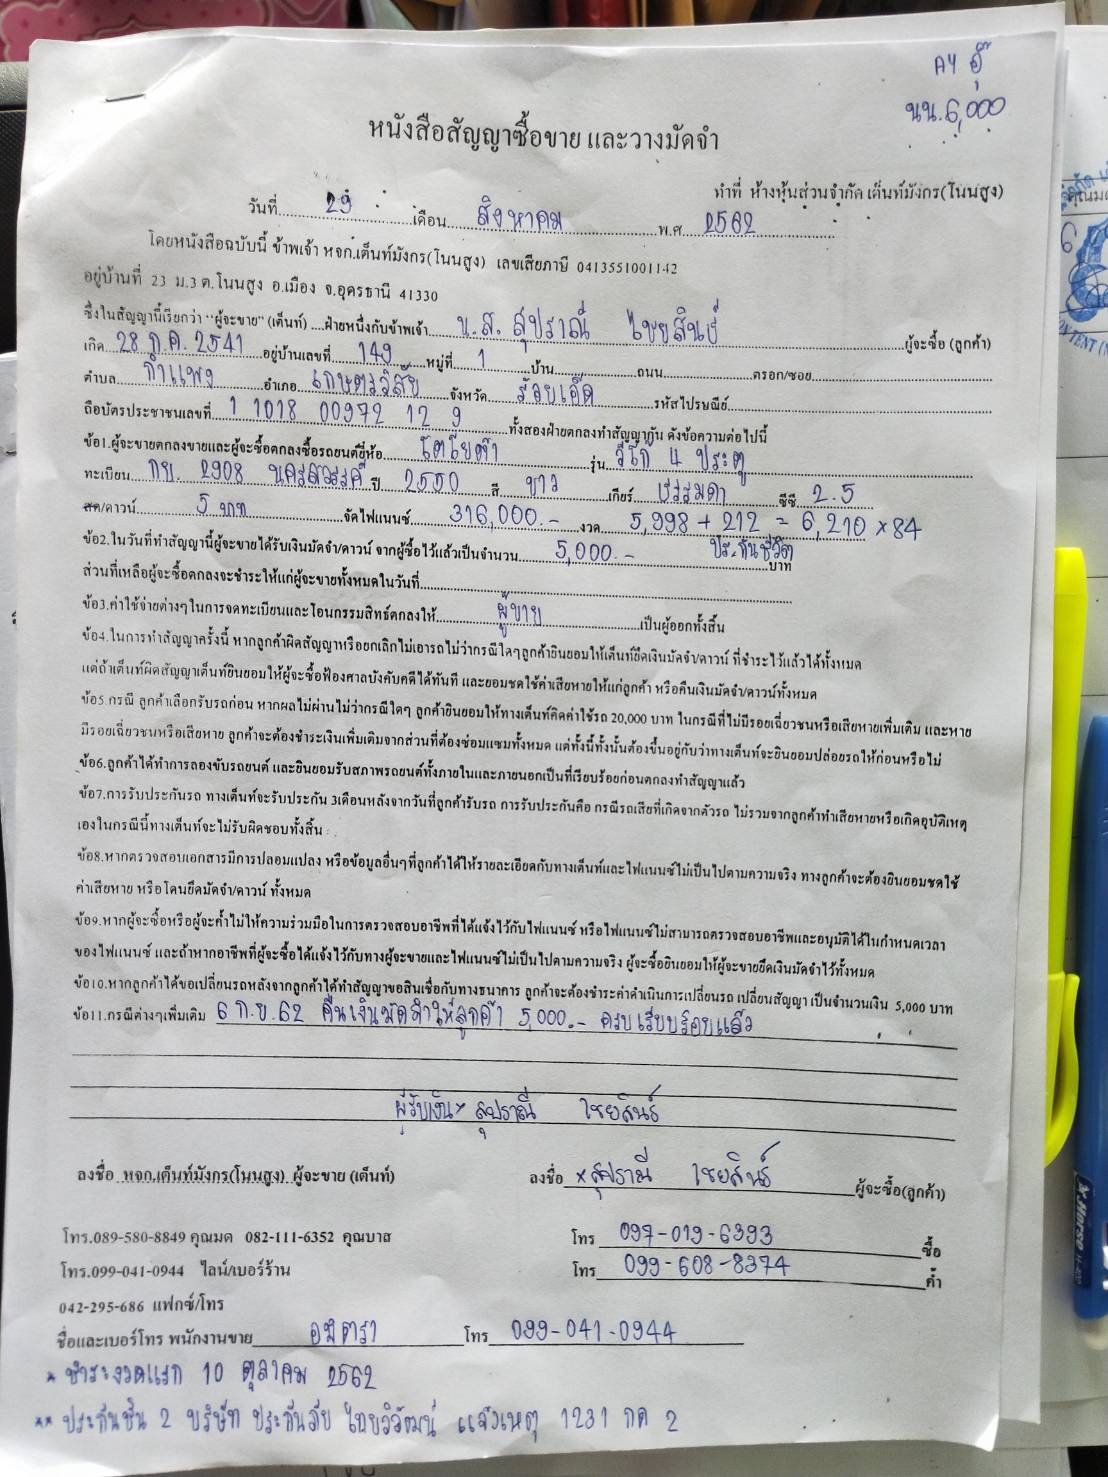 คุณ อุ๊
นน.6,000
หนังสือสัญญาซื้อขาย และวางมัดจำ
ทำที่ ห้างหุ้นส่วนจำกัด เต็นท์มังกร(โนนสูง)
วันที่ 29 เดือน สิงหาคม พ.ศ 2562
โดยหนังสือฉบับนี้ ข้าพเจ้า หจก.เต็นท์มังกร(โนนสูง) เลขเสียภาษี 0413551001142
อยู่บ้านที่ 23 ม.3 ต.โนนสูง อ.เมือง จ.อุดรธานี 41330
ซึ่งในสัญญานี้เรียกว่า "ผู้จะขาย" (เต็นท์) ฝ่ายหนึ่งกับข้าพเจ้า น.ส. สุปราณี ไชยสินธุ์ ผู้จะซื้อ (ลูกค้า)
เกิด 28 ก.ค. 2541 อยู่บ้านเลขที่ 149 หมู่ที่ 1 บ้าน ถนน ตรอก/ซอย
ตำบล กำแพง อำเภอ เกษตรวิสัย จังหวัด ร้อยเอ็ด รหัสไปรษณีย์
ถือบัตรประชาชนเลขที่ 1 1018 00972 12 9 ทั้งสองฝ่ายตกลงทำสัญญากัน ดังข้อความต่อไปนี้
ข้อ1.ผู้จะขายตกลงขายและผู้จะซื้อตกลงซื้อรถยนต์ยี่ห้อ โตโยต้า รุ่น วีโก้ 4 ประตู
ทะเบียน กบ 2908 นครสวรรค์ ปี 2550 สี ขาว เกียร์ ธรรมดา ซีซี 2.5
สด/ดาวน์ 5 บาท จัดไฟแนนซ์ 316,000.- งวด 5,998 + 212 = 6,210 × 84
ประกันชีวิต
ข้อ2.ในวันที่ทำสัญญานี้ผู้จะขายได้รับเงินมัดจำ/ดาวน์ จากผู้ซื้อไว้แล้วเป็นจำนวน 5,000.- บาท
ส่วนที่เหลือผู้จะซื้อตกลงจะชำระให้แก่ผู้จะขายทั้งหมดในวันที่
ข้อ3.ค่าใช้จ่ายต่างๆในการจดทะเบียนและโอนกรรมสิทธ์ตกลงให้ ผู้ขาย เป็นผู้ออกทั้งสิ้น
ข้อ4.ในการทำสัญญาครั้งนี้ หากลูกค้าผิดสัญญาหรือยกเลิกไม่เอารถไม่ว่ากรณีใดๆลูกค้ายินยอมให้เต็นท์ยึดเงินมัดจำ/ดาวน์ ที่ชำระไว้แล้วได้ทั้งหมด
แต่ถ้าเต็นท์ผิดสัญญาเต็นท์ยินยอมให้ผู้จะซื้อฟ้องศาลบังคับคดีได้ทันที และยอมชดใช้ค่าเสียหายให้แก่ลูกค้า หรือคืนเงินมัดจำ/ดาวน์ทั้งหมด
ข้อ5.กรณี ลูกค้าเลือกรับรถก่อน หากผลไม่ผ่านไม่ว่ากรณีใดๆ ลูกค้ายินยอมให้ทางเต็นท์คิดค่าใช้รถ 20,000 บาท ในกรณีที่ไม่มีรอยเฉี่ยวชนหรือเสียหายเพิ่มเติม และหาย
มีรอยเฉี่ยวชนหรือเสียหาย ลูกค้าจะต้องชำระเงินเพิ่มเติมจากส่วนที่ต้องซ่อมแซมทั้งหมด แต่ทั้งนี้ทั้งนั้นต้องขึ้นอยู่กับว่าทางเต็นท์จะยินยอมปล่อยรถให้ก่อนหรือไม่
ข้อ6.ลูกค้าได้ทำการลองขับรถยนต์ และยินยอมรับสภาพรถยนต์ทั้งภายในและภายนอกเป็นที่เรียบร้อยก่อนตกลงทำสัญญาแล้ว
ข้อ7.การรับประกันรถ ทางเต็นท์จะรับประกัน 3เดือนหลังจากวันที่ลูกค้ารับรถ การรับประกันคือ กรณีรถเสียที่เกิดจากตัวรถ ไม่รวมจากลูกค้าทำเสียหายหรือเกิดอุบัติเหตุ
เองในกรณีนี้ทางเต็นท์จะไม่รับผิดชอบทั้งสิ้น
ข้อ8.หากตรวจสอบเอกสารมีการปลอมแปลง หรือข้อมูลอื่นๆที่ลูกค้าได้ให้รายละเอียดกับทางเต็นท์และไฟแนนซ์ไม่เป็นไปตามความจริง ทางลูกค้าจะต้องยินยอมชดใช้
ค่าเสียหาย หรือโดนยึดมัดจำ/ดาวน์ ทั้งหมด
ข้อ9.หากผู้จะซื้อหรือผู้จะค้ำไม่ให้ความร่วมมือในการตรวจสอบอาชีพที่ได้แจ้งไว้กับไฟแนนซ์ หรือไฟแนนซ์ไม่สามารถตรวจสอบอาชีพและอนุมัติได้ในกำหนดเวลา
ของไฟแนนซ์ และถ้าหากอาชีพที่ผู้จะซื้อได้แจ้งไว้กับทางผู้จะขายและไฟแนนซ์ไม่เป็นไปตามความจริง ผู้จะซื้อยินยอมให้ผู้จะขายยึดเงินมัดจำไว้ทั้งหมด
ข้อ10.หากลูกค้าได้ขอเปลี่ยนรถหลังจากลูกค้าได้ทำสัญญาขอสินเชื่อกับทางธนาคาร ลูกค้าจะต้องชำระค่าดำเนินการเปลี่ยนรถ เปลี่ยนสัญญา เป็นจำนวนเงิน 5,000 บาท
ข้อ11.กรณีต่างๆเพิ่มเติม 6 ก.ย. 62 คืนเงินมัดจำให้ลูกค้า 5,000.- ครบเรียบร้อยแล้ว
ผู้รับเงิน× สุปราณี ไชยสินธุ์
ลงชื่อ หจก.เต็นท์มังกร(โนนสูง) ผู้จะขาย (เต็นท์) ลงชื่อ × สุปราณี ไชยสินธุ์ ผู้จะซื้อ(ลูกค้า)
โทร.089-580-8849 คุณมด 082-111-6352 คุณบาส โทร 097-019-6393 ซื้อ
โทร.099-041-0944 ไลน์/เบอร์ร้าน โทร 099-608-8374 ค้ำ
042-295-686 แฟกซ์/โทร
ชื่อและเบอร์โทร พนักงานขาย อมิตรา โทร 099-041-0944
* ชำระงวดแรก 10 ตุลาคม 2562
** ประกันชั้น 2 บริษัท ประกันภัย ไทยวิวัฒน์ แจ้งเหตุ 1231 กด 2